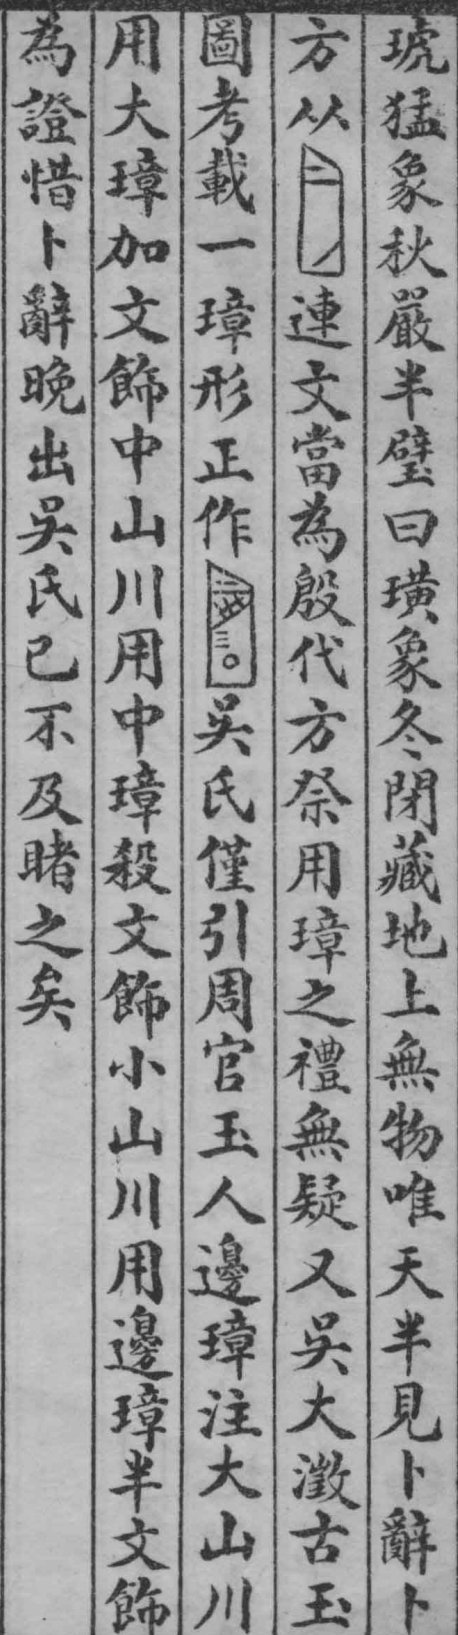 琥猛象秋嚴半璧曰璜象冬閉藏地上無物唯天半見卜辭卜
方从連文當為殷代方祭用璋之禮無疑又吳大澂古玉
圖考載一璋形正作吳氏僅引周官玉人邊璋注大山川
用大璋加文飾中山川用中璋殺文飾小山川用邊璋半文飾
為證惜卜辭晚出吳氏已不及睹之矣